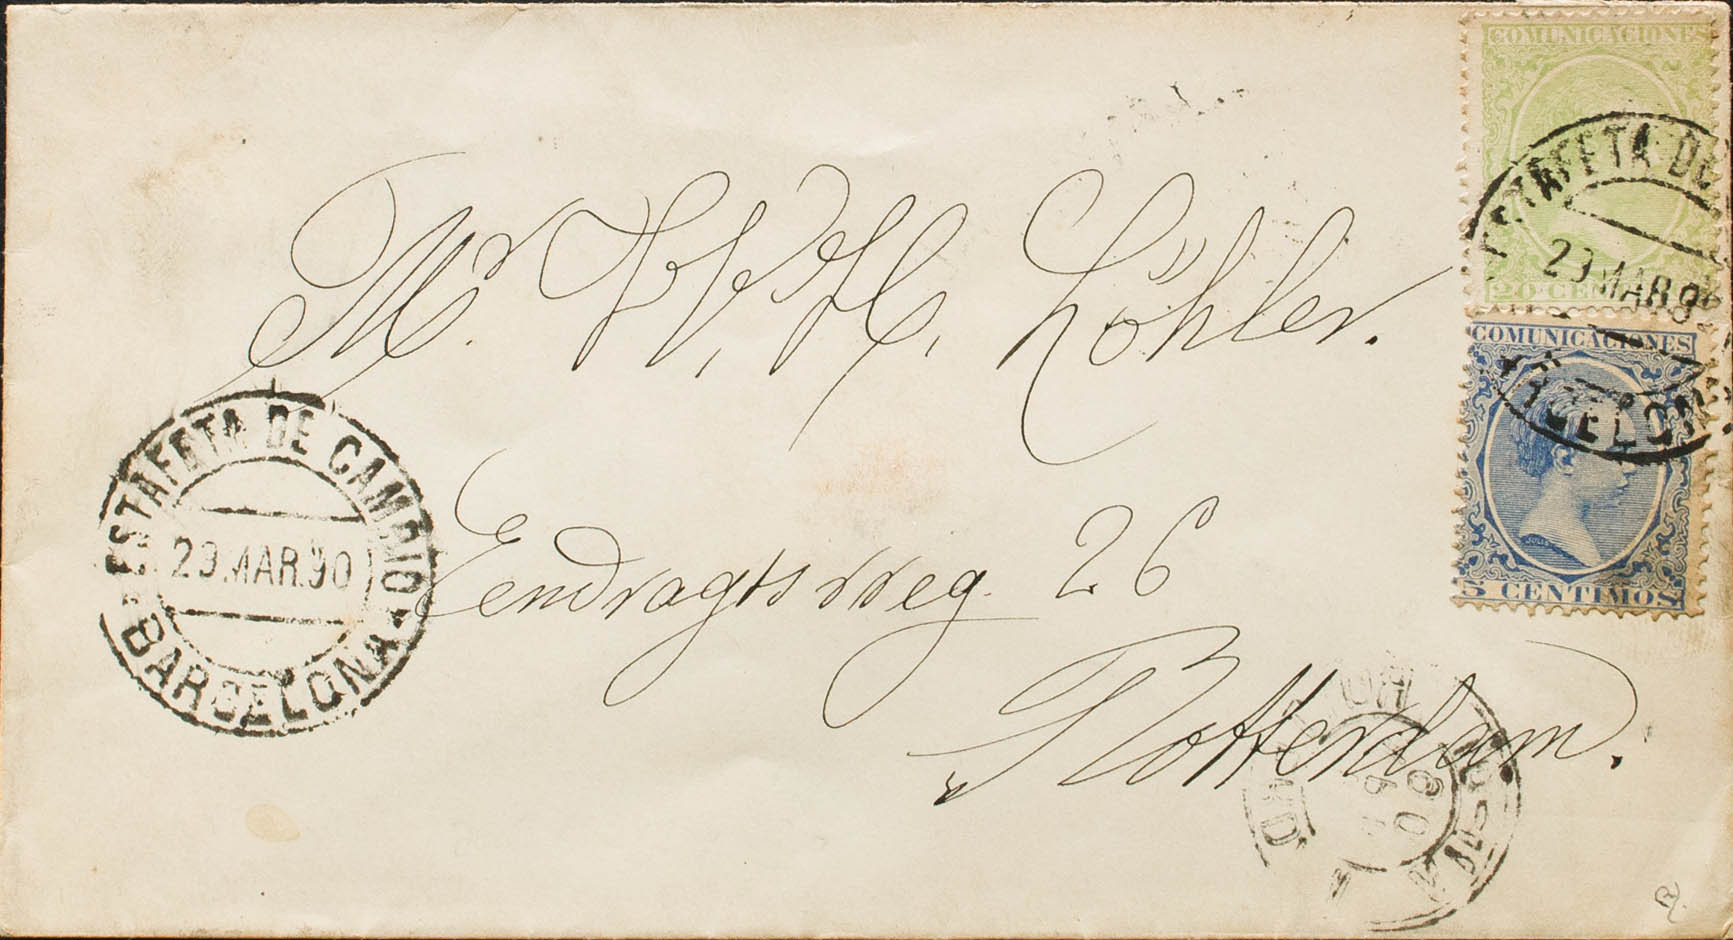 COMUNICACIONES
ESTAFETA DE
29.MAR.90
20 CE
COMUNICACIONES
5 CENTIMOS
Mr. W. H. Köhler.
Eendragtsweg. 26
Rotterdam.
ESTAFETA DE CAMBIO
29.MAR.90
BARCELONA